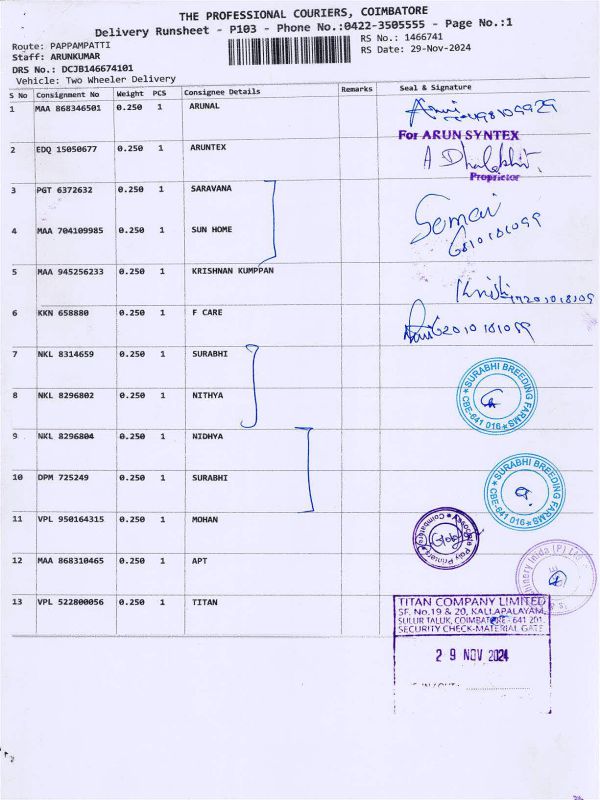 THE PROFESSIONAL COURIERS, COIMBATORE
Delivery Runsheet - P103 - Phone No.:0422-3505555 - Page No.:1
Route: PAPPAMPATTI
Staff: ARUNKUMAR
DRS No.: DCJB146674101
Vehicle: Two Wheeler Delivery
RS No.: 1466741
RS Date: 29-Nov-2024
S No Consignment No Weight PCS Consignee Details Remarks Seal & Signature
1 MAA 868346501 0.250 1 ARUNAL
2 EDQ 15050677 0.250 1 ARUNTEX
For ARUN SYNTEX
Proprietor
3 PGT 6372632 0.250 1 SARAVANA
4 MAA 704109985 0.250 1 SUN HOME
5 MAA 945256233 0.250 1 KRISHNAN KUMPPAN
6 KKN 658880 0.250 1 F CARE
7 NKL 8314659 0.250 1 SURABHI
8 NKL 8296802 0.250 1 NITHYA
SURABHI BREEDING FARMS
CBE-641 016
9 NKL 8296804 0.250 1 NIDHYA
10 DPM 725249 0.250 1 SURABHI
SURABHI BREEDING FARMS
CBE-641 016
11 VPL 950164315 0.250 1 MOHAN
12 MAA 868310465 0.250 1 APT
13 VPL 522800056 0.250 1 TITAN
TITAN COMPANY LIMITED
SF. No.19 & 20, KALLAPALAYAM,
SULUR TALUK, COIMBATORE - 641 201.
SECURITY CHECK-MATERIAL GATE
29 NOV 2024